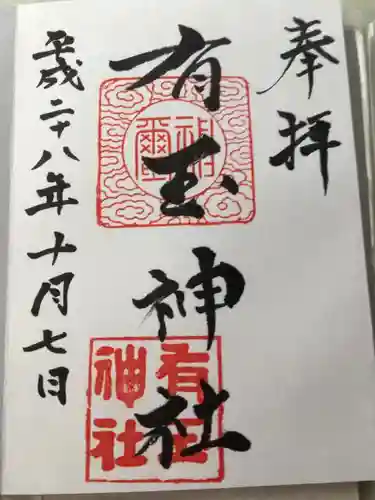 奉拝
有玉神社
平成二十八年十月七日
有玉
神社